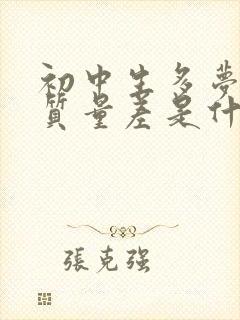 初中生多夢
質量差是什
張克強